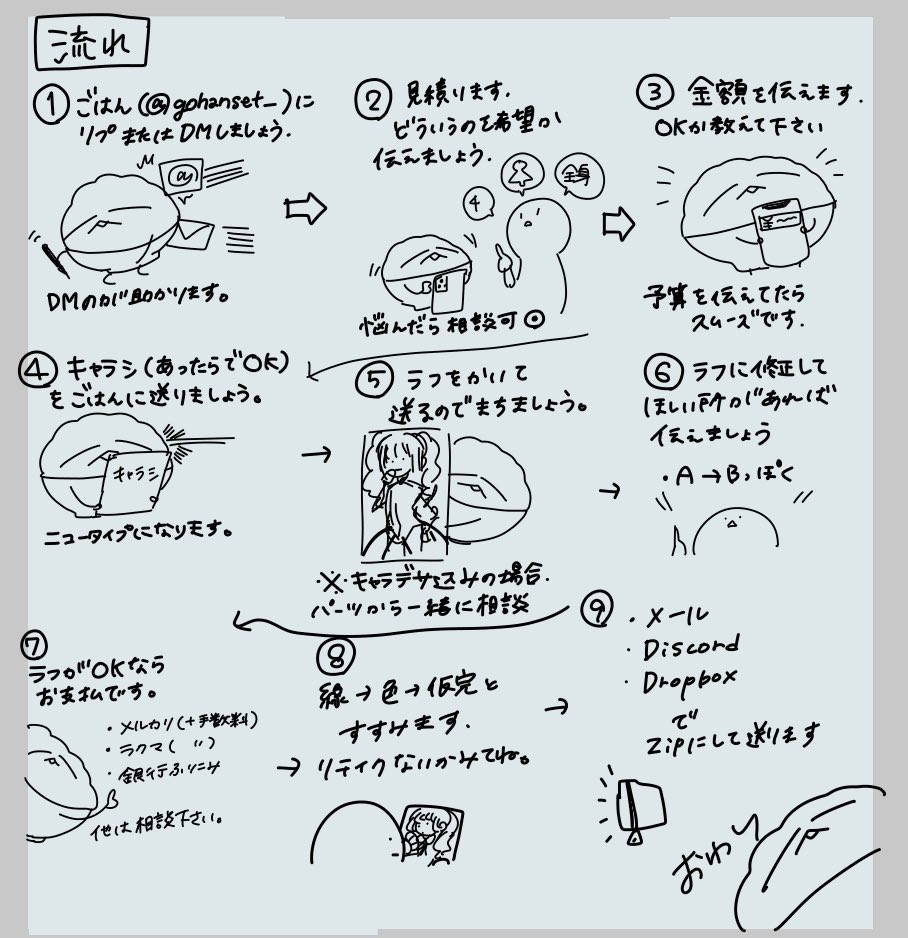 流れ
① ごはん(@gohanset_)に
リプまたはDMしましょう.
@
DMのが助かります。
② 見積ります.
どういうのを希望か
伝えましょう.
4
全身
悩んだら相談可
③ 金額を伝えます.
OKか教えて下さい
予算を伝えてたら
スムーズです.
④ キャラシ(あったらでOK)
をごはんに送りましょう。
キャラシ
ニュータイプになります。
⑤ ラフをかいて
送るのでまちましょう。
※キャラデザ込みの場合.
パーツから一緒に相談
⑥ ラフに修正して
ほしい所があれば
伝えましょう
・A→B,ぽく
⑦
ラフがOKなら
お支払です。
・メルカリ(+手数料)
・ラクマ( 〃 )
・銀行ふりこみ
他は相談下さい。
⑧
線→色→仮完と
すすみます.
リテイクないかみてね。
⑨
・メール
・Discord
・Dropbox
で
Zipにして送ります
おわり